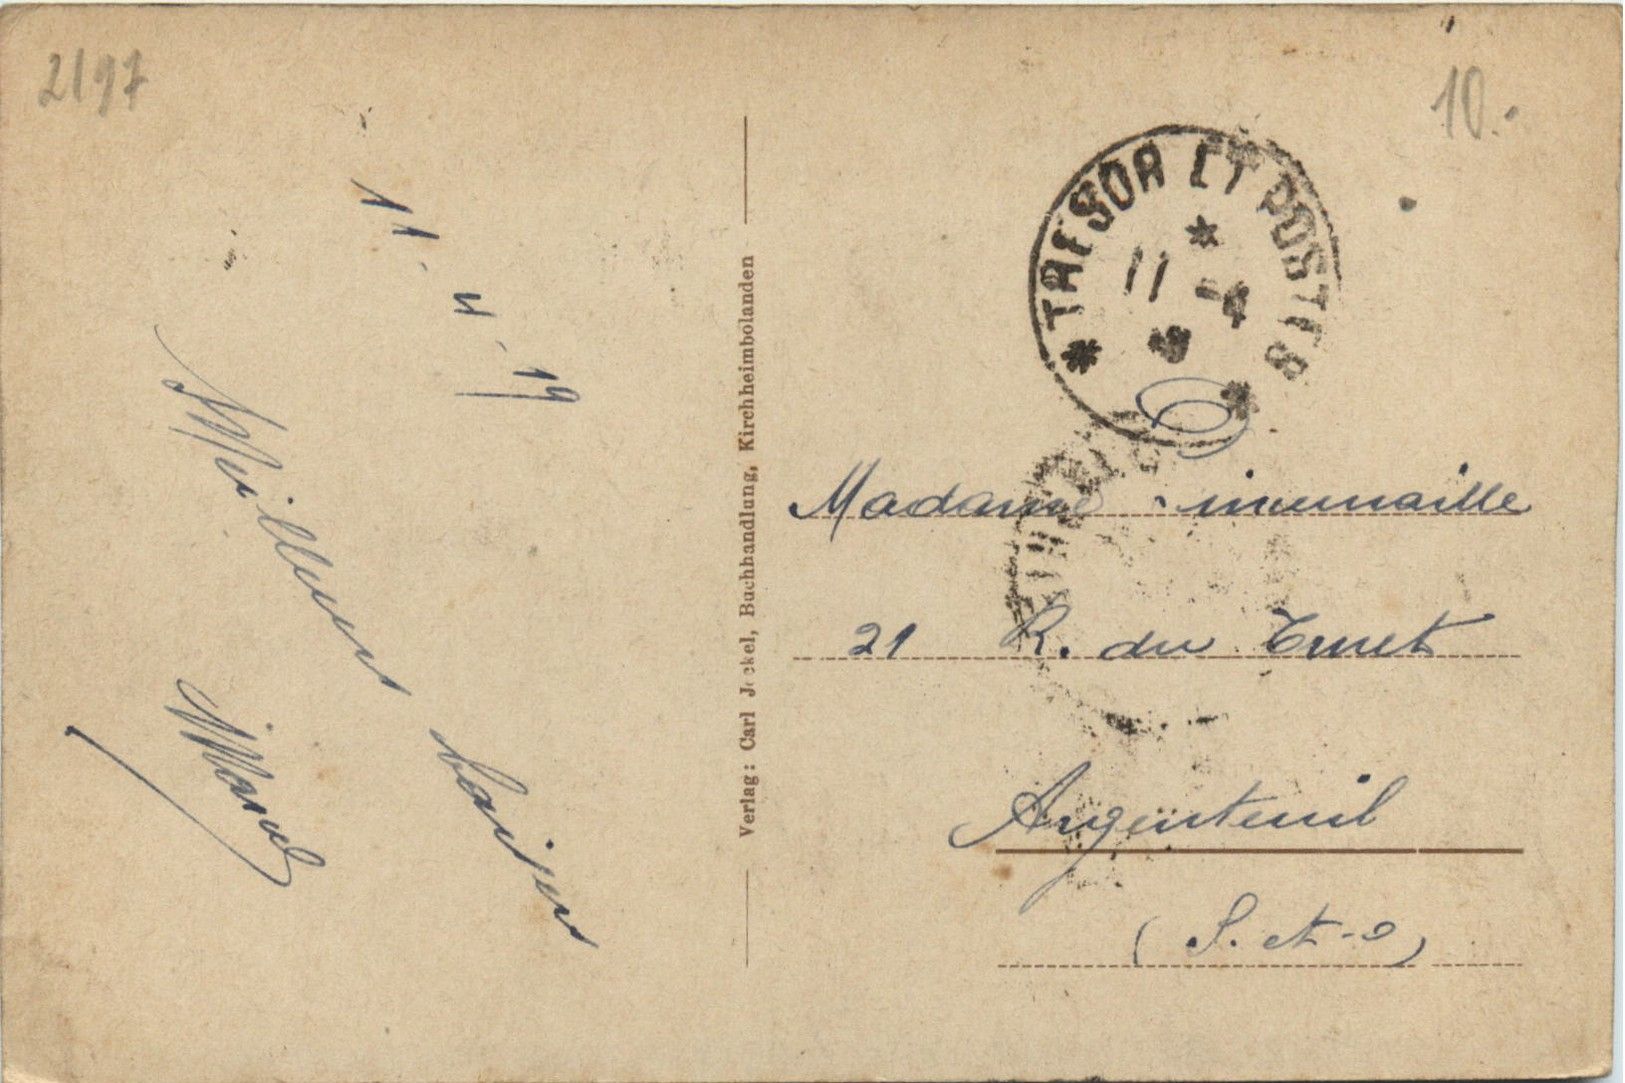 2197
10.-
11-4-19
Meilleurs baisers
Marcel
Verlag: Carl Jockel, Buchhandlung, Kirchheimbolanden
* TRESOR ET POSTES *
11 -4
Madame
21 R. du
Argenteuil
(S. et-O)